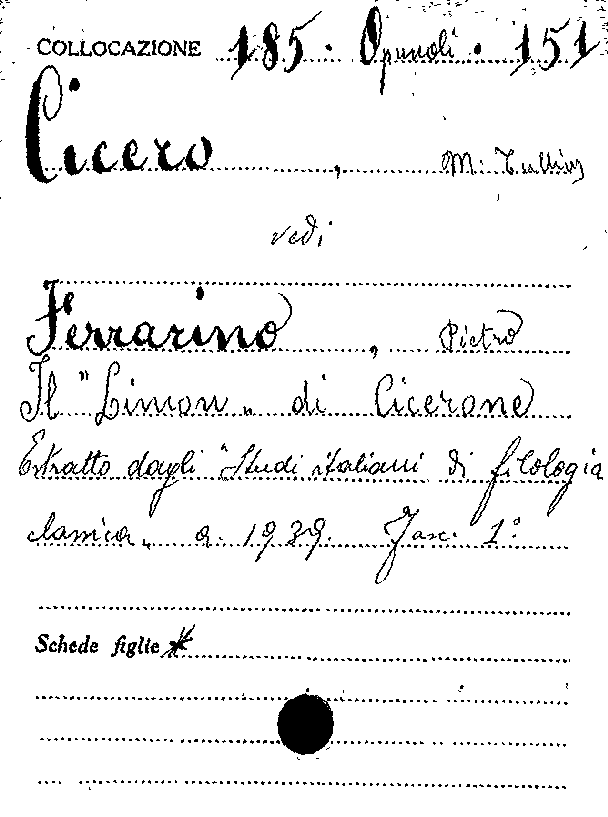 COLLOCAZIONE 185. Opuscoli. 151
Cicero, M. Tullius
vedi
Ferrarino, Pietro
Il "Limon" di Cicerone
Estratto dagli "Studi italiani di filologia
classica" a. 1939. Fasc. 1°
Schede figlie